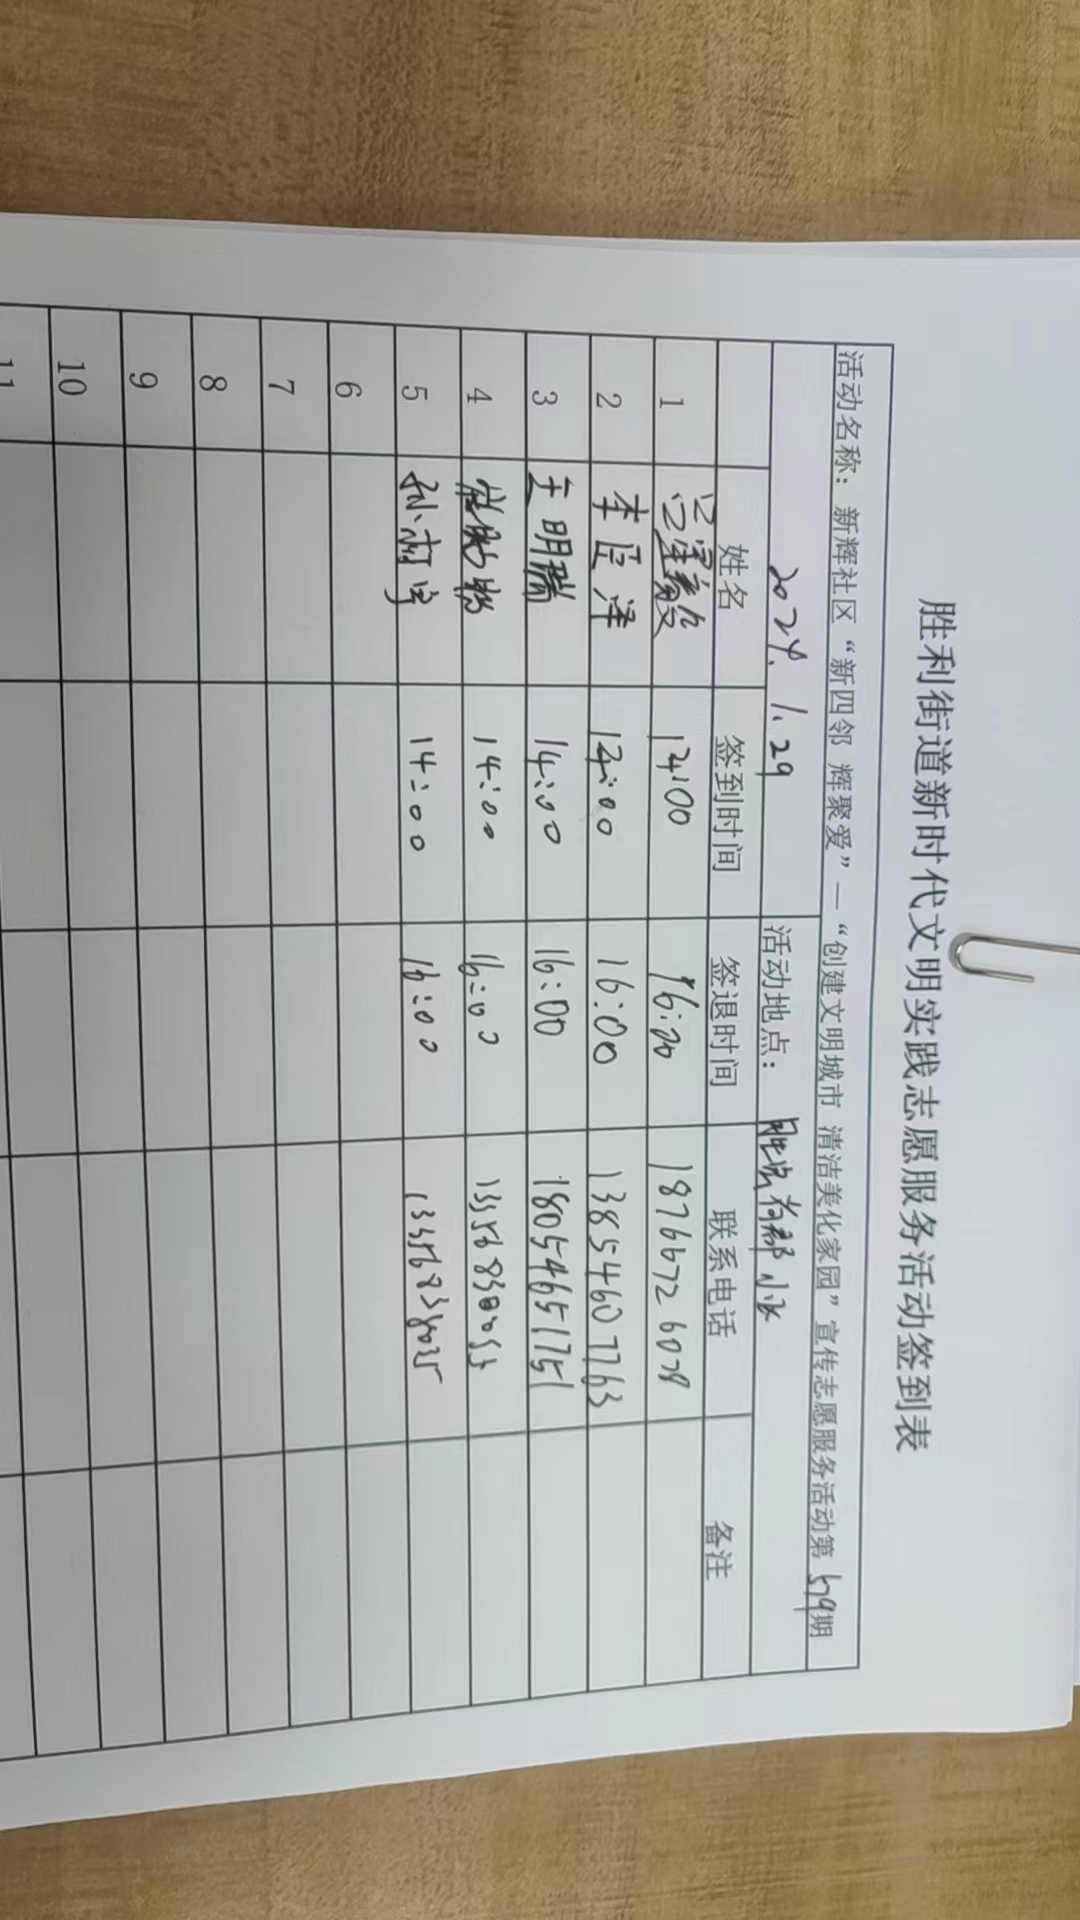 胜利街道新时代文明实践志愿服务活动签到表
活动名称：新辉社区“新四邻 辉聚爱”—“创建文明城市 清洁美化家园”宣传志愿服务活动第579期
2024. 1. 29 活动地点：小区
姓名 签到时间 签退时间 联系电话 备注
1 14:00 16:00 18766726078
2 李臣泽 14:00 16:00 13854607763
3 王明瑞 14:00 16:00 18054651751
4 14:00 16:00
5 孙 14:00 16:00
6
7
8
9
10
11